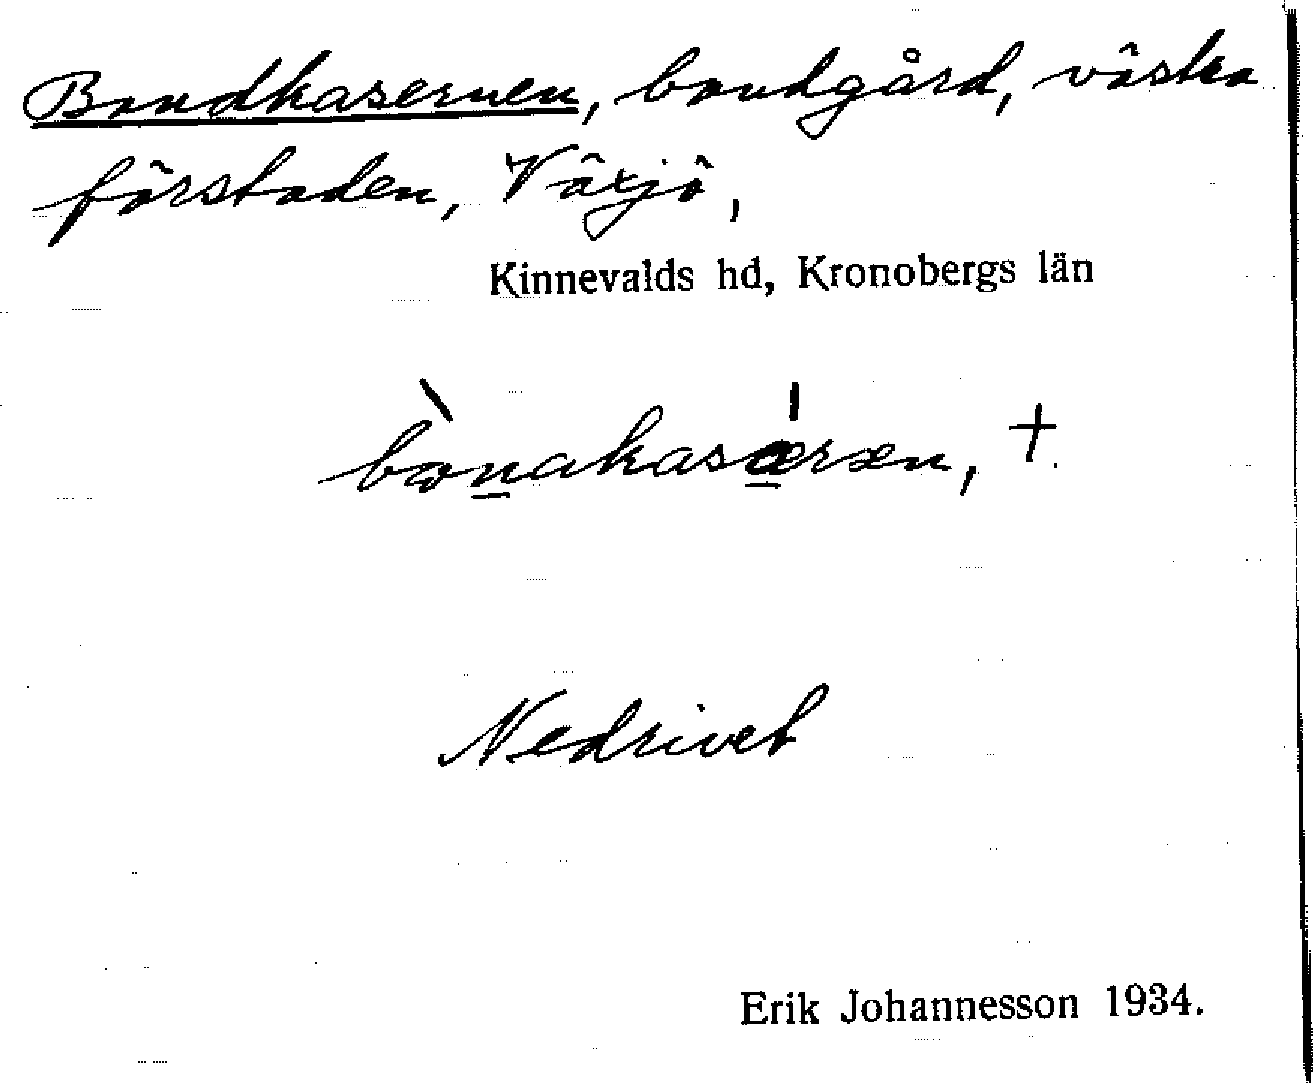 Bondkasernen, bondgård, västra
förstaden, Växjö,
Kinnevalds hd, Kronobergs län
bωnakasæræn, +
Nedrivet
Erik Johannesson 1934.